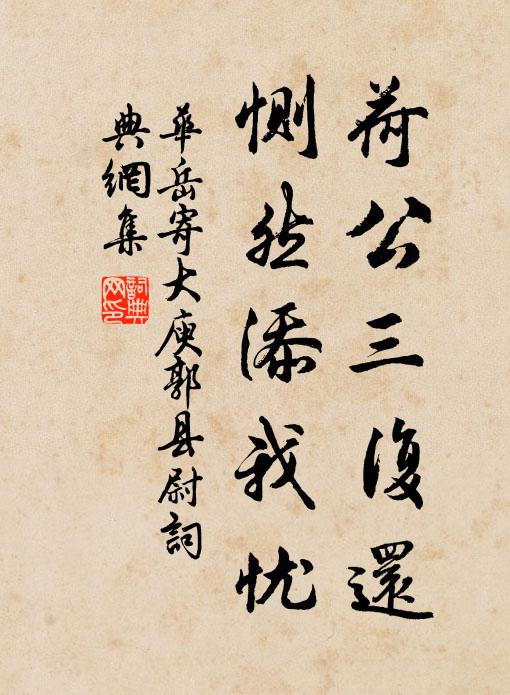 荷公三復還
惻然添我忧
華岳寄大庾郭县尉詞
典網集
詞典
网印